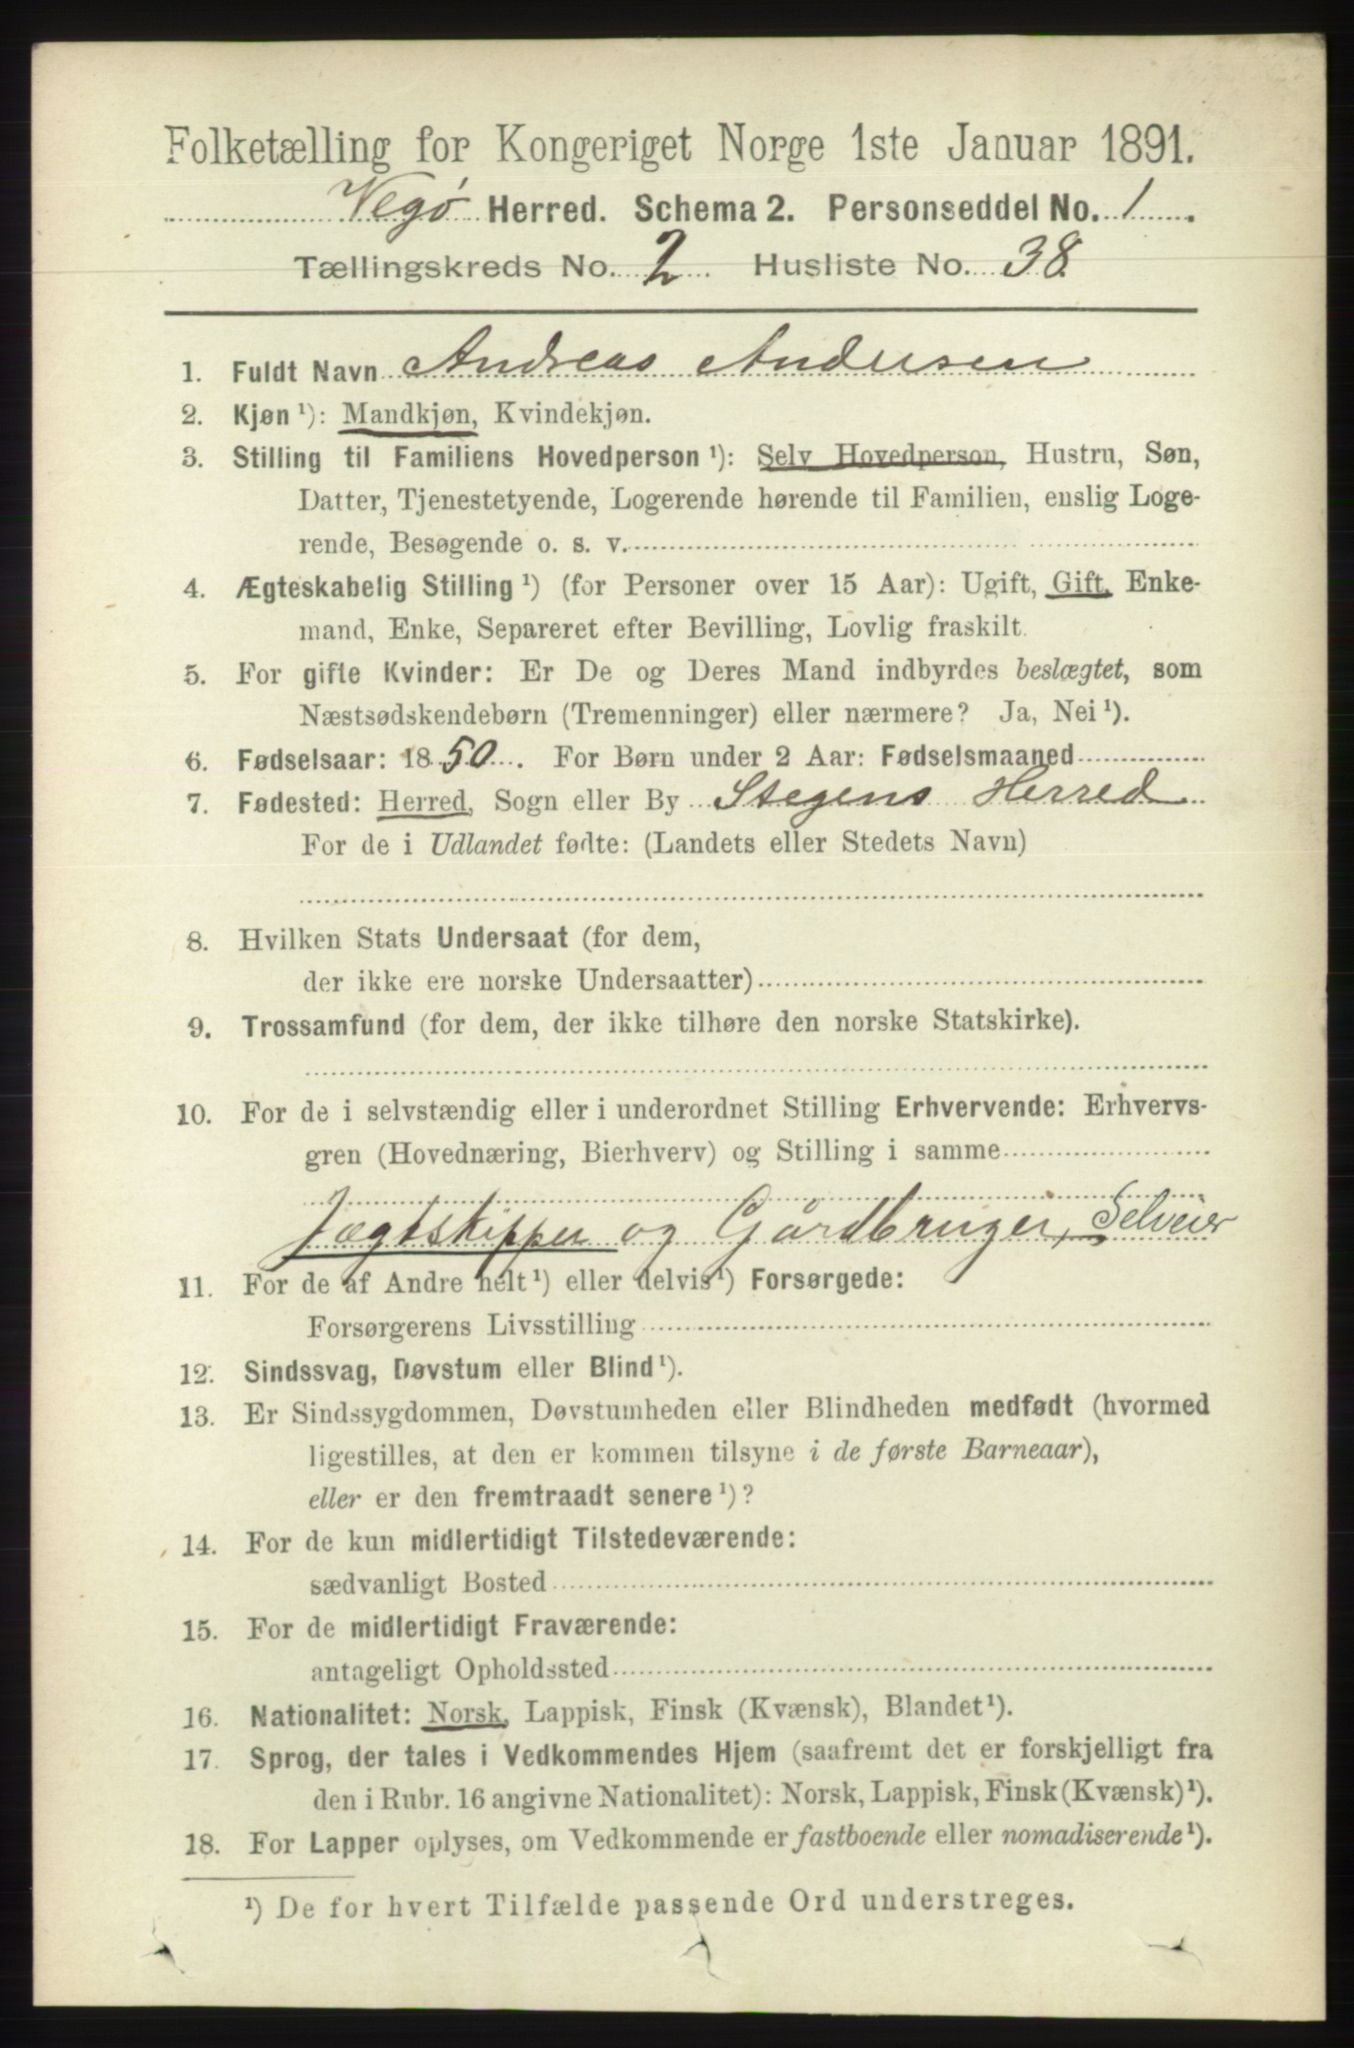 Folketælling for Kongeriget Norge 1ste Januar 1891.
Vegø Herred. Schema 2. Personseddel No. 1.
Tællingskreds No. 2 Husliste No. 38.
1. Fuldt Navn Andreas Andersen
2. Kjøn¹): Mandkjøn, Kvindekjøn.
3. Stilling til Familiens Hovedperson¹): Selv Hovedperson, Hustru, Søn,
Datter, Tjenestetyende, Logerende hørende til Familien, enslig Loge-
rende, Besøgende o. s. v.
4. Ægteskabelig Stilling¹) (for Personer over 15 Aar): Ugift, Gift, Enke-
mand, Enke, Separeret efter Bevilling, Lovlig fraskilt.
5. For gifte Kvinder: Er De og Deres Mand indbyrdes beslægtet, som
Næstsødskendebørn (Tremenninger) eller nærmere? Ja, Nei¹).
6. Fødselsaar: 1850. For Børn under 2 Aar: Fødselsmaaned
7. Fødested: Herred, Sogn eller By Stegens Herred
For de i Udlandet fødte: (Landets eller Stedets Navn)
8. Hvilken Stats Undersaat (for dem,
der ikke ere norske Undersaatter)
9. Trossamfund (for dem, der ikke tilhøre den norske Statskirke).
10. For de i selvstændig eller i underordnet Stilling Erhvervende: Erhvervs-
gren (Hovednæring, Bierhverv) og Stilling i samme
Jægtskipper og Gårdbruger, Selveier
11. For de af Andre helt¹) eller delvis¹) Forsørgede:
Forsørgerens Livsstilling
12. Sindssvag, Døvstum eller Blind¹).
13. Er Sindssygdommen, Døvstumheden eller Blindheden medfødt (hvormed
ligestilles, at den er kommen tilsyne i de første Barneaar),
eller er den fremtraadt senere¹)?
14. For de kun midlertidigt Tilstedeværende:
sædvanligt Bosted
15. For de midlertidigt Fraværende:
antageligt Opholdssted
16. Nationalitet: Norsk, Lappisk, Finsk (Kvænsk), Blandet¹).
17. Sprog, der tales i Vedkommendes Hjem (saafremt det er forskjelligt fra
den i Rubr. 16 angivne Nationalitet): Norsk, Lappisk, Finsk (Kvænsk)¹).
18. For Lapper oplyses, om Vedkommende er fastboende eller nomadiserende¹).
¹) De for hvert Tilfælde passende Ord understreges.